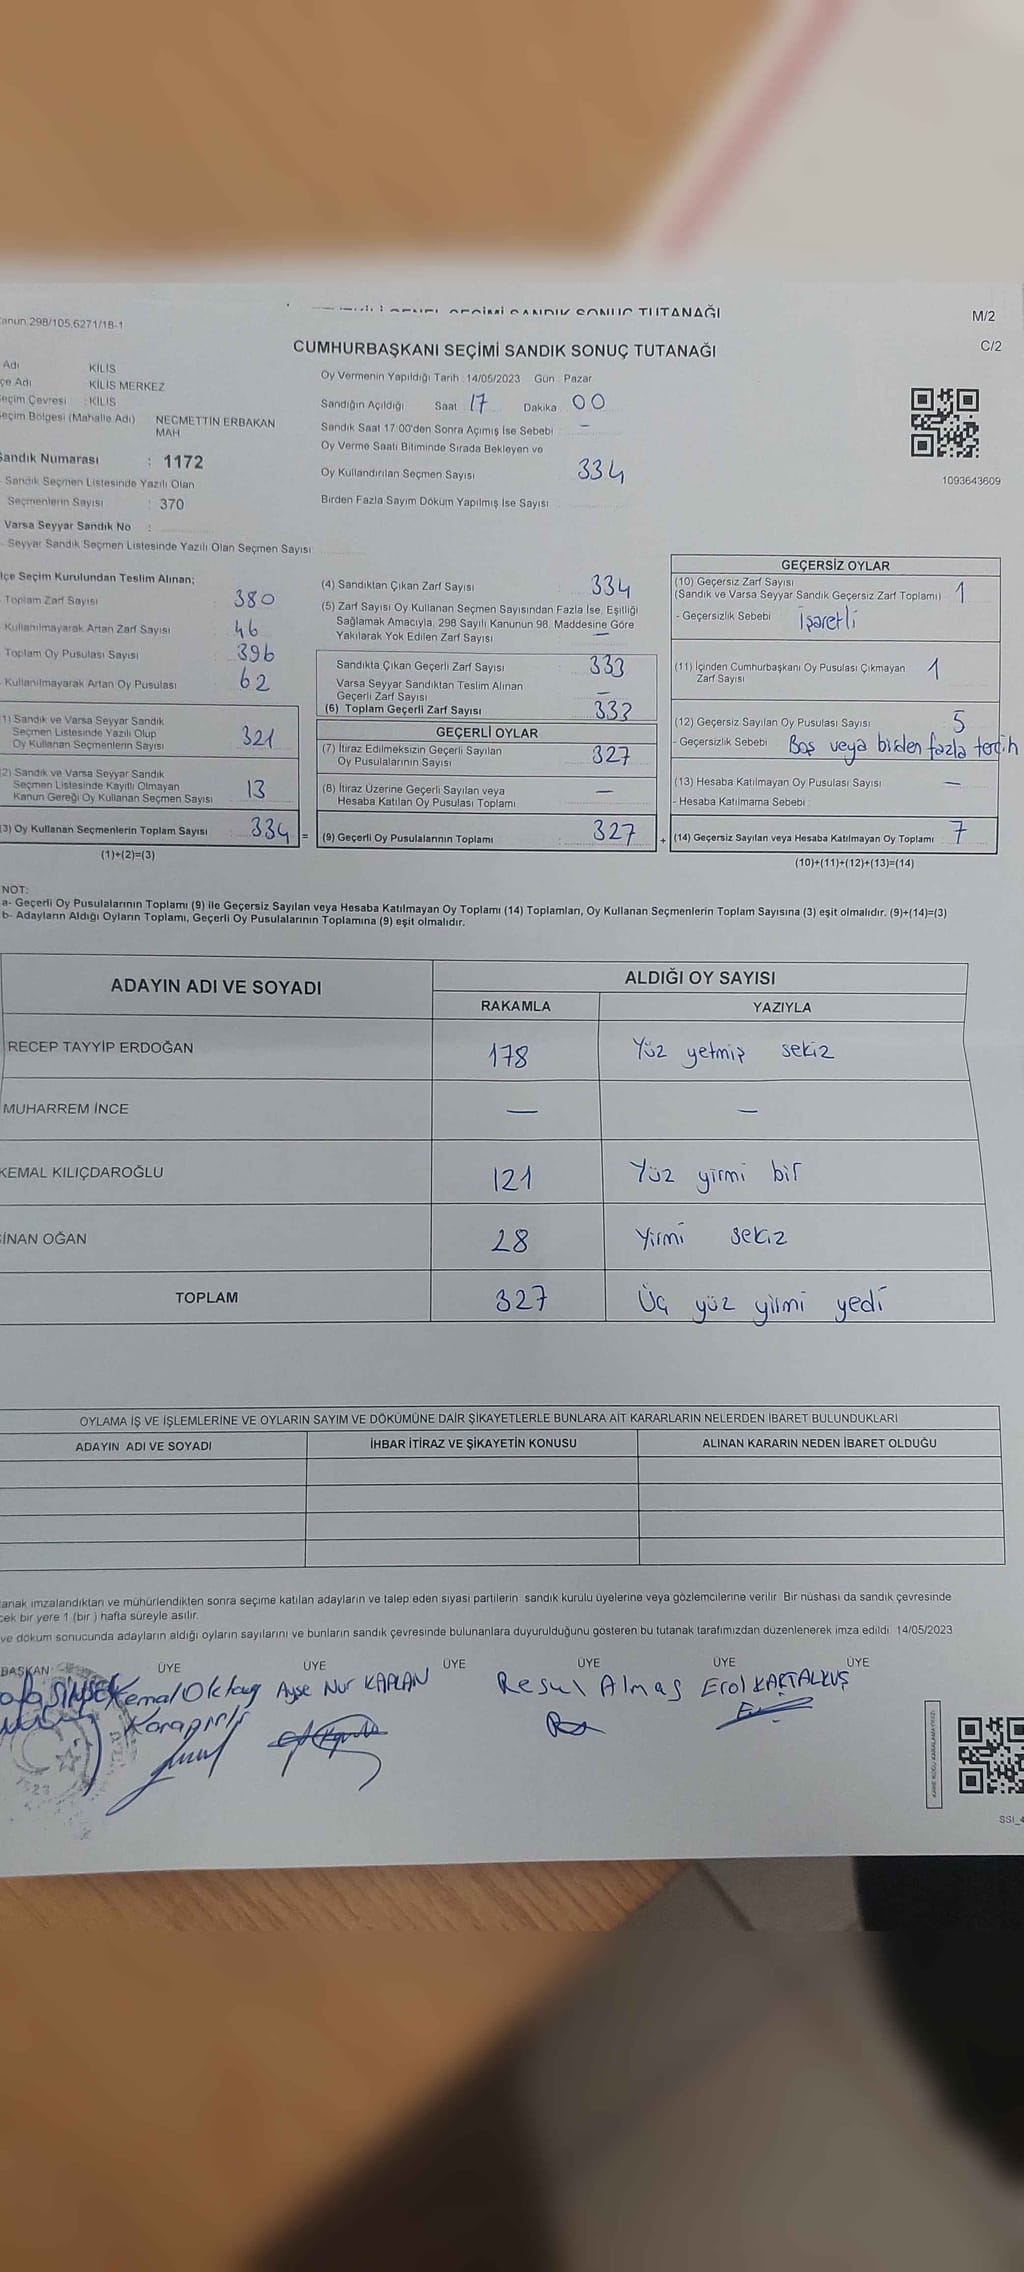 SANDIK SONUÇ TUTANAĞI
M/2
anun;298/105,6271/18-1
CUMHURBAŞKANI SEÇİMİ SANDIK SONUÇ TUTANAĞI
C/2
Adı KİLİS
çe Adı KİLİS MERKEZ
eçim Çevresi : KİLİS
eçim Bölgesi (Mahalle Adı) NECMETTİN ERBAKAN
MAH
Sandık Numarası : 1172
- Sandık Seçmen Listesinde Yazılı Olan
Seçmenlerin Sayısı : 370
Varsa Seyyar Sandık No :
- Seyyar Sandık Seçmen Listesinde Yazılı Olan Seçmen Sayısı:
Oy Vermenin Yapıldığı Tarih : 14/05/2023 Gün : Pazar
Sandığın Açıldığı Saat : 17 Dakika : 00
Sandık Saat 17:00'den Sonra Açımış İse Sebebi : –
Oy Verme Saati Bitiminde Sırada Bekleyen ve
Oy Kullandırılan Seçmen Sayısı : 334
Birden Fazla Sayım Döküm Yapılmış İse Sayısı :
1093643609
lçe Seçim Kurulundan Teslim Alınan;
- Toplam Zarf Sayısı : 380
- Kullanılmayarak Artan Zarf Sayısı : 46
- Toplam Oy Pusulası Sayısı : 396
- Kullanılmayarak Artan Oy Pusulası : 62
1) Sandık ve Varsa Seyyar Sandık
Seçmen Listesinde Yazılı Olup
Oy Kullanan Seçmenlerin Sayısı : 321
2) Sandık ve Varsa Seyyar Sandık
Seçmen Listesinde Kayıtlı Olmayan
Kanun Gereği Oy Kullanan Seçmen Sayısı : 13
3) Oy Kullanan Seçmenlerin Toplam Sayısı : 334 =
(1)+(2)=(3)
(4) Sandıktan Çıkan Zarf Sayısı : 334
(5) Zarf Sayısı Oy Kullanan Seçmen Sayısından Fazla İse, Eşitliği
Sağlamak Amacıyla, 298 Sayılı Kanunun 98. Maddesine Göre
Yakılarak Yok Edilen Zarf Sayısı : –
Sandıkta Çıkan Geçerli Zarf Sayısı : 333
Varsa Seyyar Sandıktan Teslim Alınan
Geçerli Zarf Sayısı : –
(6) Toplam Geçerli Zarf Sayısı : 333
GEÇERLİ OYLAR
(7) İtiraz Edilmeksizin Geçerli Sayılan
Oy Pusulalarının Sayısı : 327
(8) İtiraz Üzerine Geçerli Sayılan veya
Hesaba Katılan Oy Pusulası Toplamı : –
(9) Geçerli Oy Pusulalarının Toplamı : 327 +
GEÇERSİZ OYLAR
(10) Geçersiz Zarf Sayısı
(Sandık ve Varsa Seyyar Sandık Geçersiz Zarf Toplamı) : 1
- Geçersizlik Sebebi : İşaretli
(11) İçinden Cumhurbaşkanı Oy Pusulası Çıkmayan
Zarf Sayısı : 1
(12) Geçersiz Sayılan Oy Pusulası Sayısı : 5
- Geçersizlik Sebebi : Boş veya birden fazla tercih
(13) Hesaba Katılmayan Oy Pusulası Sayısı : –
- Hesaba Katılmama Sebebi :
(14) Geçersiz Sayılan veya Hesaba Katılmayan Oy Toplamı : 7
(10)+(11)+(12)+(13)=(14)
NOT:
a- Geçerli Oy Pusulalarının Toplamı (9) ile Geçersiz Sayılan veya Hesaba Katılmayan Oy Toplamı (14) Toplamları, Oy Kullanan Seçmenlerin Toplam Sayısına (3) eşit olmalıdır. (9)+(14)=(3)
b- Adayların Aldığı Oyların Toplamı, Geçerli Oy Pusulalarının Toplamına (9) eşit olmalıdır.
ADAYIN ADI VE SOYADI
ALDIĞI OY SAYISI
RAKAMLA YAZIYLA
RECEP TAYYİP ERDOĞAN 178 Yüz yetmiş sekiz
MUHARREM İNCE – –
KEMAL KILIÇDAROĞLU 121 Yüz yirmi bir
İNAN OĞAN 28 Yirmi sekiz
TOPLAM 327 Üç yüz yirmi yedi
OYLAMA İŞ VE İŞLEMLERİNE VE OYLARIN SAYIM VE DÖKÜMÜNE DAİR ŞİKAYETLERLE BUNLARA AİT KARARLARIN NELERDEN İBARET BULUNDUKLARI
ADAYIN ADI VE SOYADI İHBAR İTİRAZ VE ŞİKAYETİN KONUSU ALINAN KARARIN NEDEN İBARET OLDUĞU
anak imzalandıktan ve mühürlendikten sonra seçime katılan adayların ve talep eden siyasi partilerin sandık kurulu üyelerine veya gözlemcilerine verilir. Bir nüshası da sandık çevresinde
cek bir yere 1 (bir ) hafta süreyle asılır.
ve döküm sonucunda adayların aldığı oyların sayılarını ve bunların sandık çevresinde bulunanlara duyurulduğunu gösteren bu tutanak tarafımızdan düzenlenerek imza edildi. 14/05/2023
BAŞKAN ÜYE ÜYE ÜYE ÜYE ÜYE ÜYE
Kemal Oktay Ayşe Nur KAPLAN Resul Almas Erol KARTALKUŞ
SSI_4